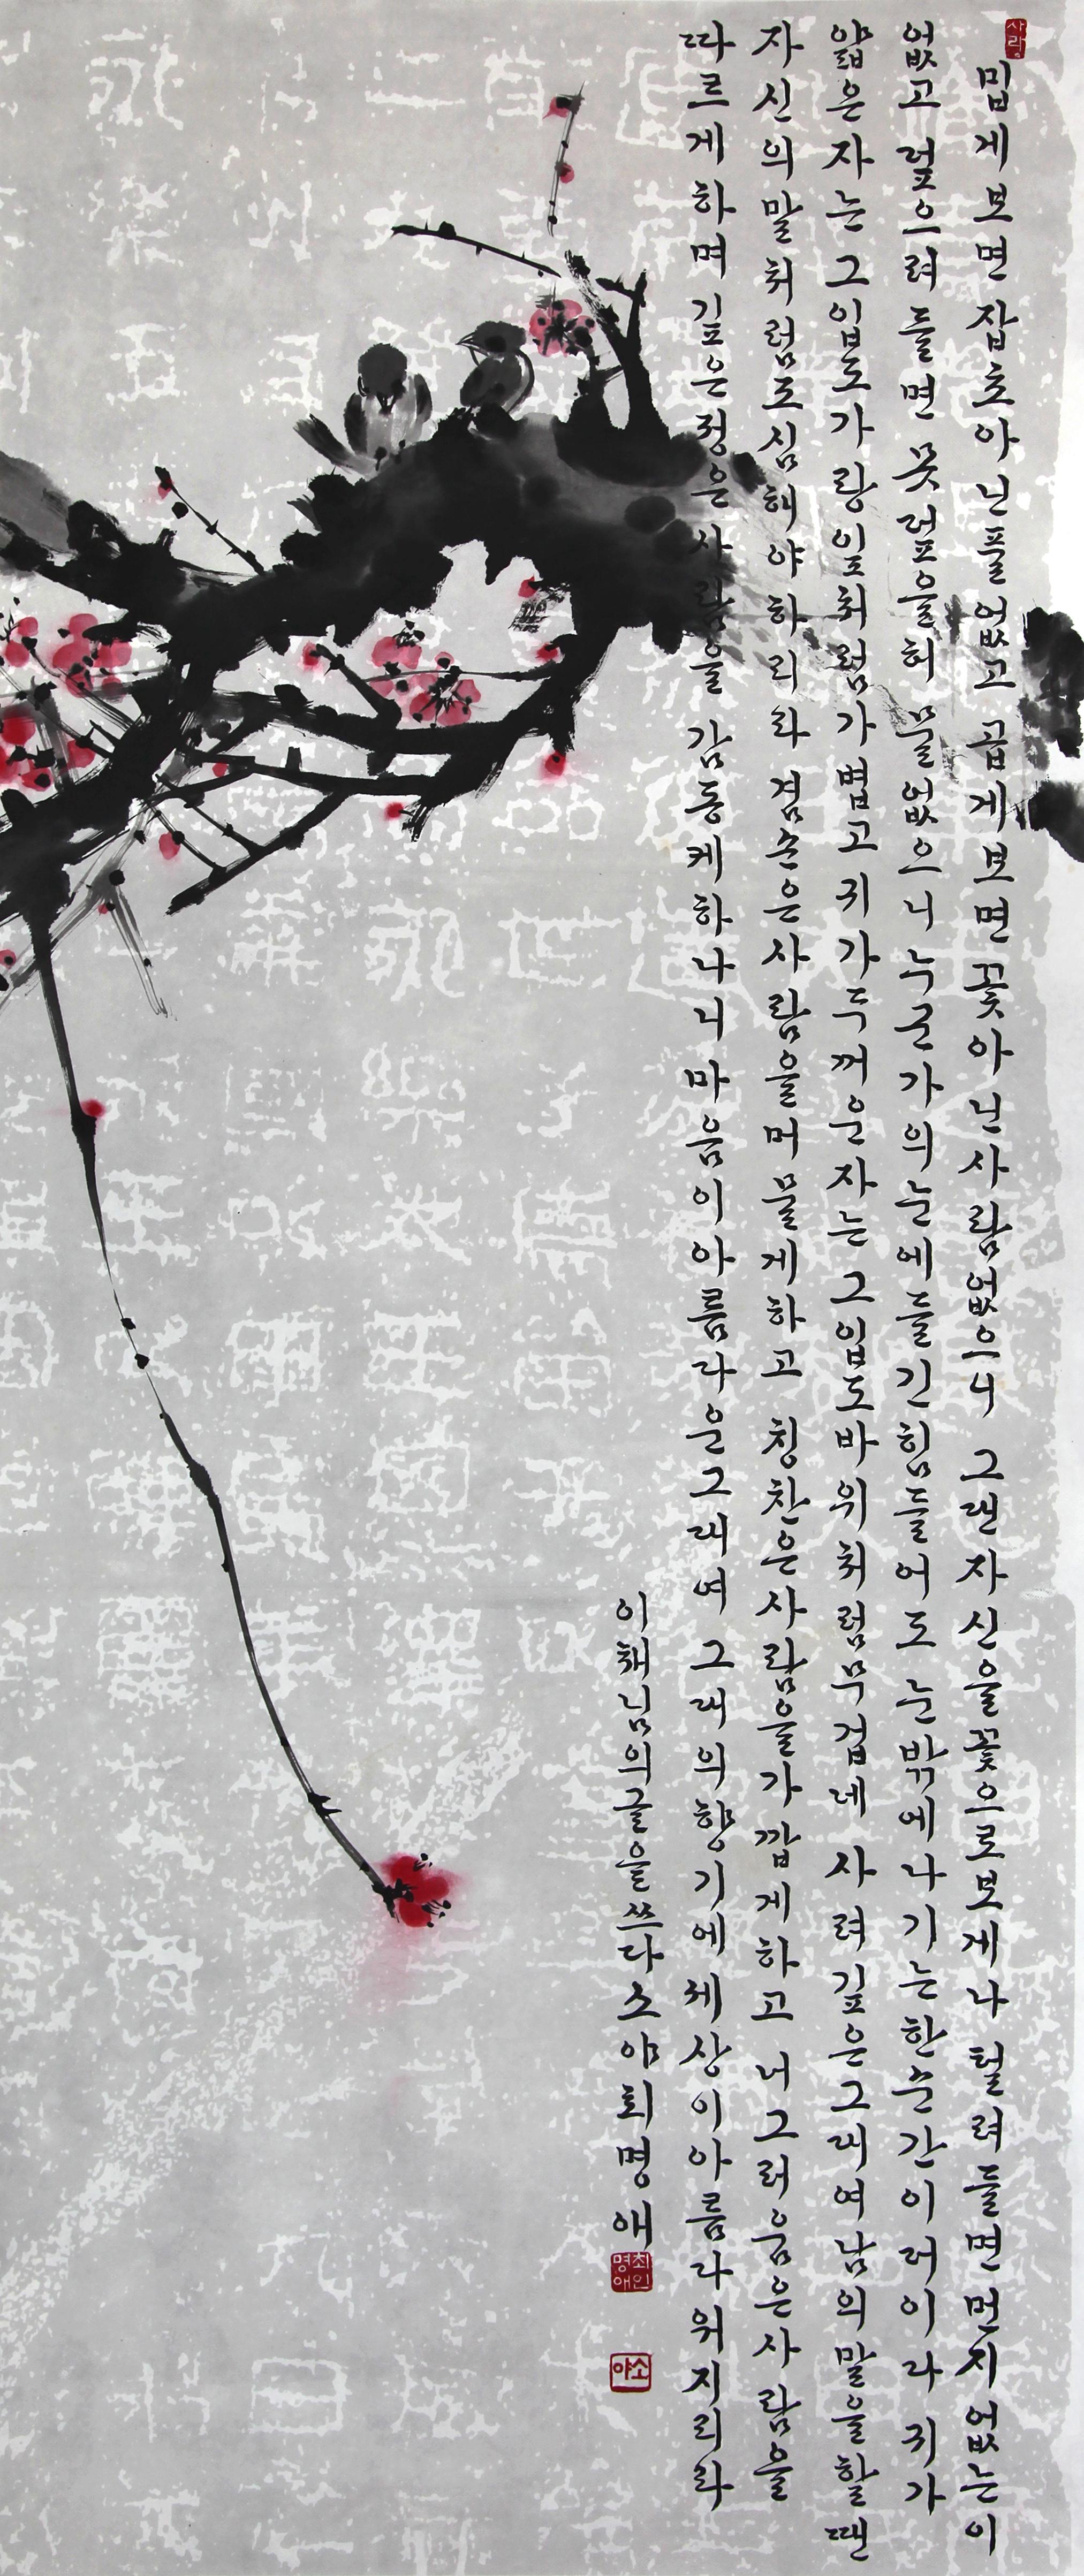 사랑
밉게 보면 잡초 아닌 풀 없고 곱게 보면 꽃 아닌 사람 없으니 그댄 자신을 꽃으로 보게나 털려 들면 먼지 없는 이
없고 덮으려 들면 못 덮을 허물 없으니 누군가의 눈에 들긴 힘들어도 눈 밖에 나기는 한 순간이러이라 귀가
얇은 자는 그 입도 가랑잎처럼 가볍고 귀가 두꺼운 자는 그 입도 바위처럼 무겁네 사려 깊은 그대여 남의 말을 할 땐
자신의 말처럼 조심해야 하리라 겸손은 사람을 머물게 하고 칭찬은 사람을 가깝게 하고 너그러움은 사람을
따르게 하며 깊은 정은 사람을 감동케 하나니 마음이 아름다운 그대여 그대의 향기에 세상이 아름다워지리라
이채님의 글을 쓰다 소야 최명애
최명애인
소야